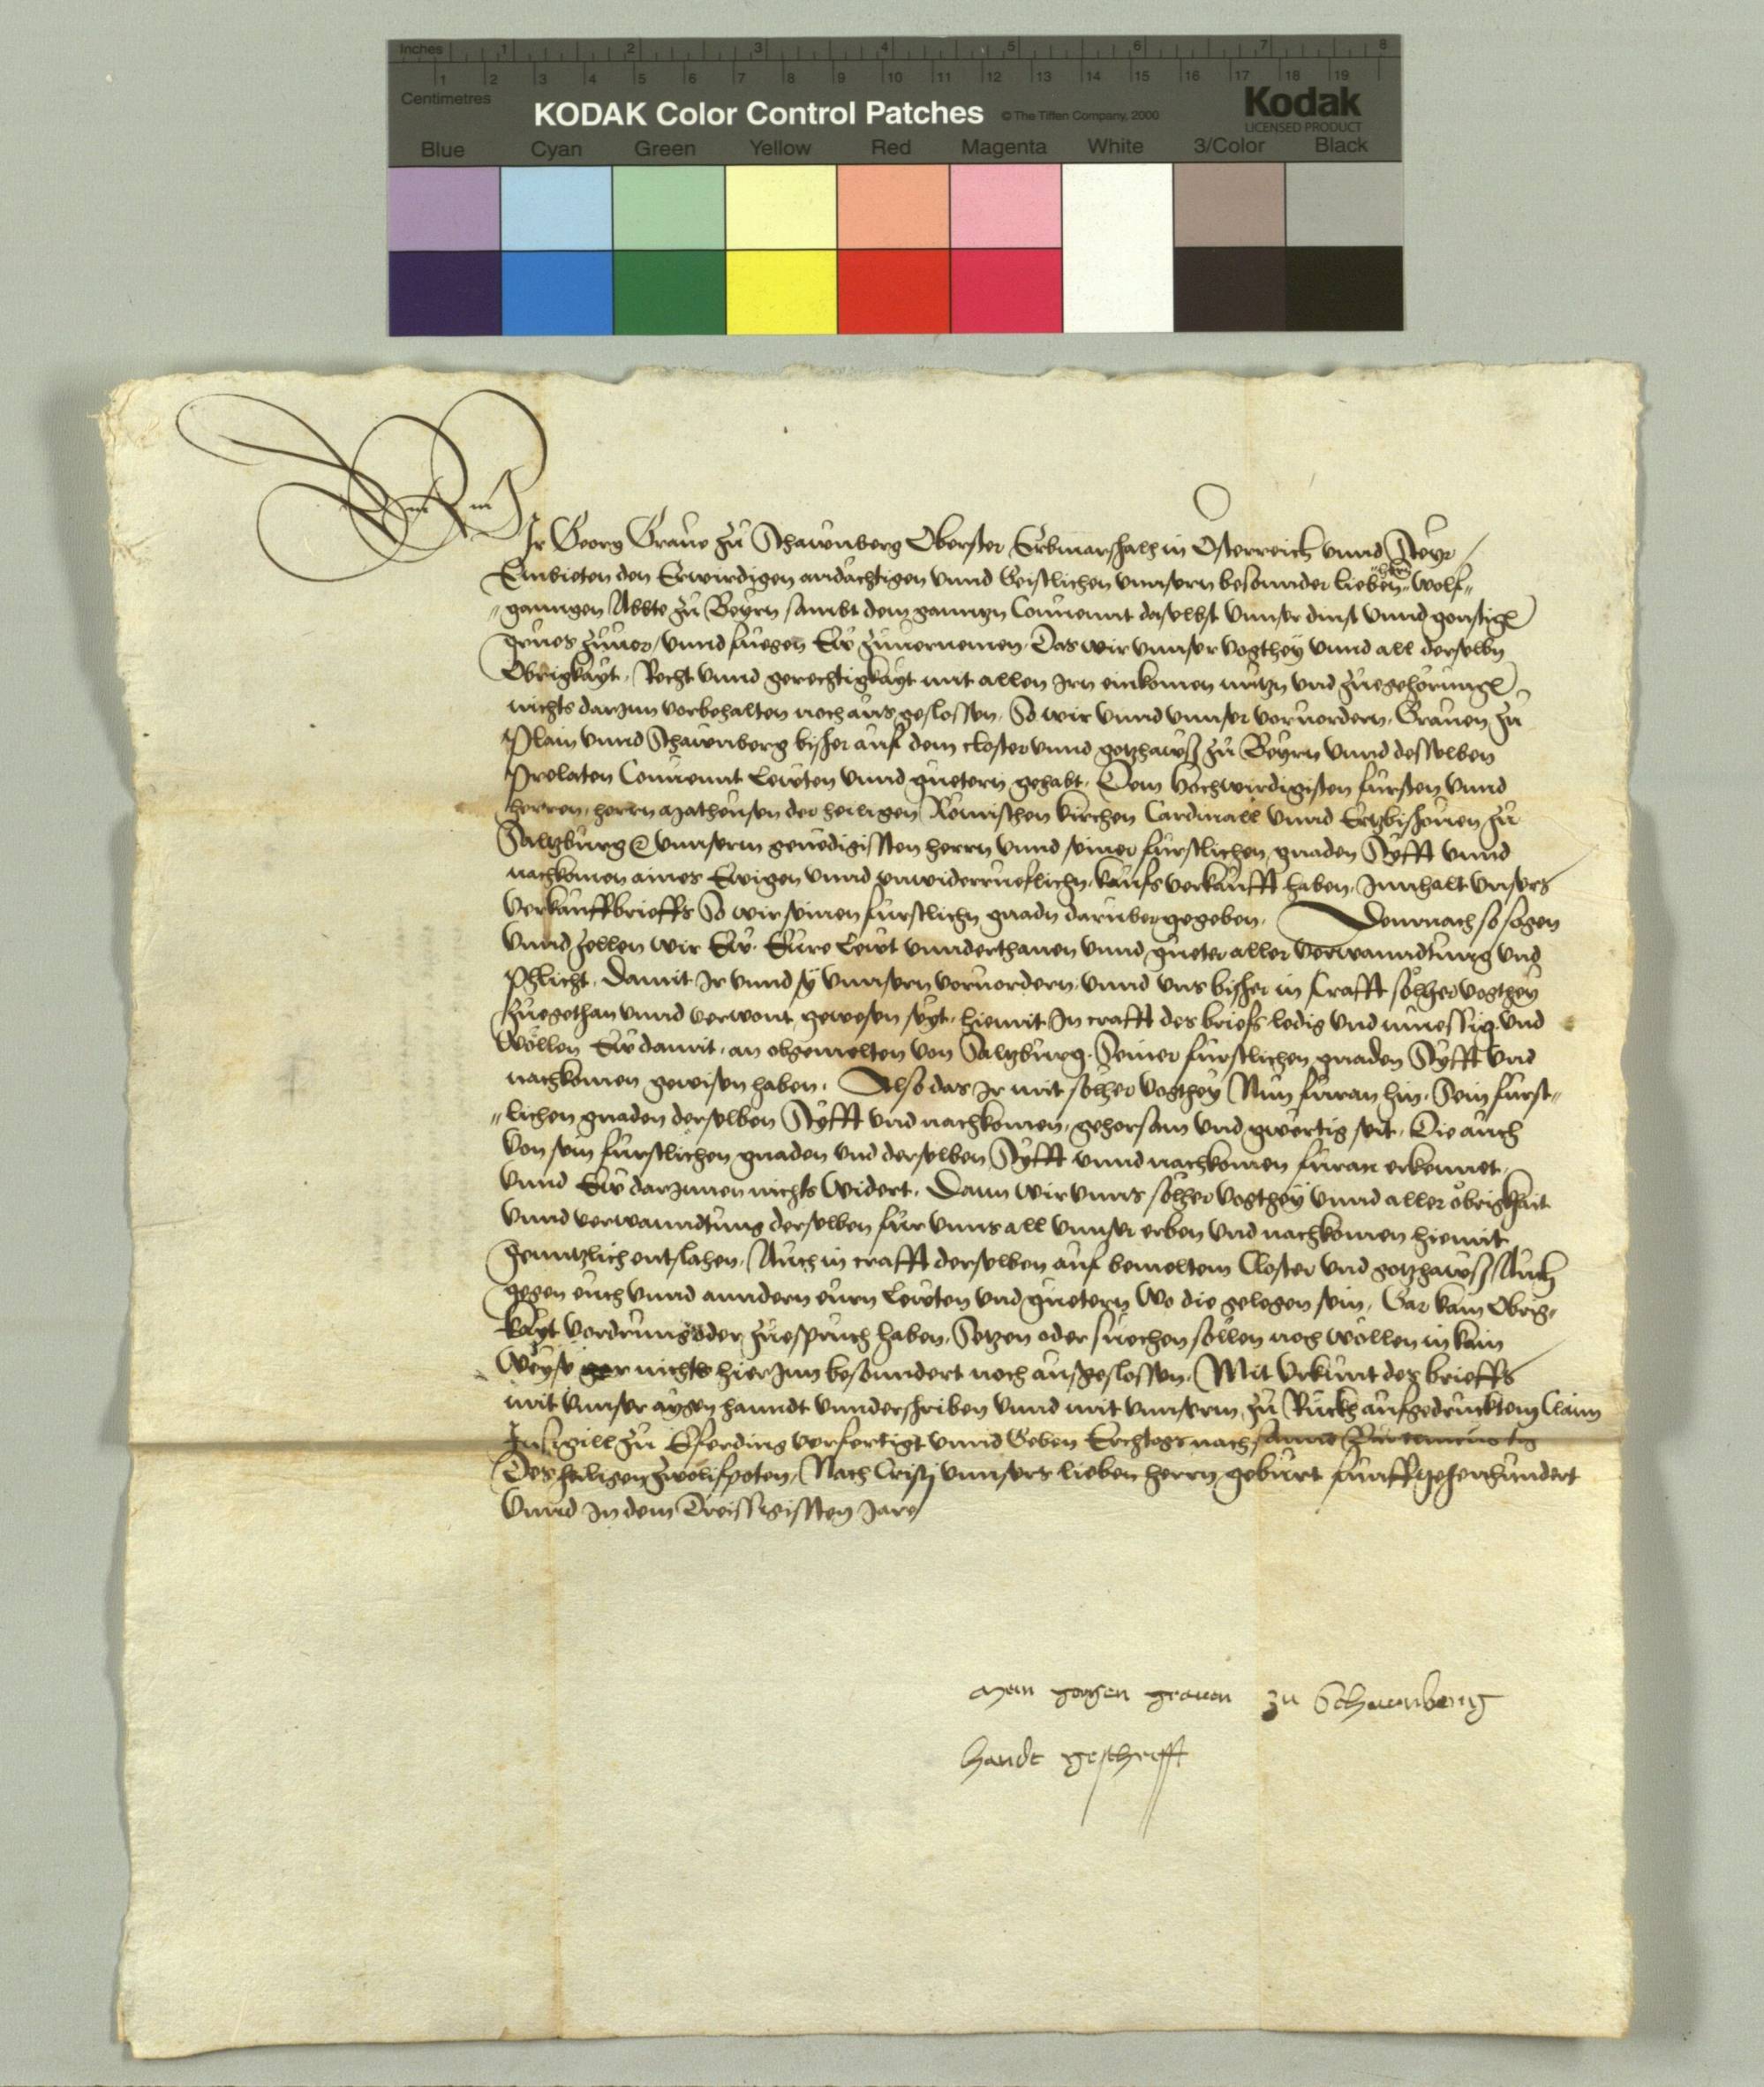 Inches 1 2 3 4 5 6 7 8
1 2 3 4 5 6 7 8 9 10 11 12 13 14 15 16 17 18 19
Centimetres
KODAK Color Control Patches © The Tiffen Company, 2000 Kodak
LICENSED PRODUCT
Blue Cyan Green Yellow Red Magenta White 3/Color Black
Wir Georg Graue zu Schawnberg Oberster Erbmarschalh in Osterreich vnnd Steyr
Embieten den Erwirdigen andächtigen vnnd Geistlichen vnnsern besonnder lieben herrn Wolf-
ganngen Abbte zu Beyrn sambt dem ganntzn Conuennt daselbst vnnser dinst vnnd gonstigen
grues zuuor, vnnd fuegen Ew zuuernemen, Das wir vnnser vogthey vnnd all derselbn
Obrigkayt, Recht vnnd gerechtigkayt mit allen irn einkomen nutzn vnd zuegehorungen
nichts darinn vorbehalten noch ausgeslossen, So wir vnnd vnnser voruordern, Grauen zu
Plain vnnd Schawnberg bisher auf dem closter vnnd gotzhawss zu Beyrn vnnd desselben
Prelaten Conuennt Lewten vnnd guetern gehabt, Dem Hochwirdigisten fursten vnnd
herren, herrn Matheusen der heiligen Römischen kirchen Cardinall vnnd Ertzbischouen zu
Saltzburg vnnserm genedigissten herrn vnnd seiner furstlichen gnaden Styfft vnnd
nachkomen aines Ewigen vnnd vnwiderrueflichn kaufs verkaufft haben, Innhalt vnsers
verkauffbrieffs So wir seinen furstlichn gnadn daruber gegeben. Demnach so sagen
vnnd zellen wir Ew. Eure Lewt vnnderthanen vnnd gueter aller verwanndtung vnd
Phlicht, Damit Ir vnnd sy vnnsern voruordern vnnd vns bisher in Crafft sölher vogthey
zuegethan vnnd verwont gewesen seyt, hiemit In crafft des briefs ledig vnd muessig, vnd
wöllen Ew damit, an obgemelten von Saltzburg, Seiner furstlichen gnaden Styfft vnd
nachkomen gewisen haben. Also das Ir mit sölher vogthey Nun furan hin, Sein furst-
lichen gnaden derselben Styfft vnd nachkomen, gehorsam vnd gwertig seit, Die auch
von sein furstlichen gnaden vnd derselben Styfft vnnd nachkomen furan erkennet,
vnnd Ew darinnen nichts widert. Dann wir vnns sölher vogthey vnnd aller öbrigkait
vnnd verwanndtung derselben fur vnns all vnnser erben vnd nachkomen hiemit
genntzlich entslahen, Auch in crafft derselben auf bemeltem Closter vnd gotzhawss Auch
gegen euch vnnd anndern eurn Lewten vnd guetern wo die gelegen sein, Gar kain Obrig-
kayt vordrung oder zuespruch haben, Setzen oder suechen söllen noch wöllen in kain
weyse gar nichts hierInn besonndert noch ausgeslossen, Mit vrkunt des brieffs
mit vnnser aygen hanndt vnnderschriben vnnd mit vnnserm zu Ruckh aufgedrucktem Clain
Insigill zu Eferding verfertigt vnnd Geben Erchtags nach
Des heiligen zwelifpoten, Nach Cristj vnnsers lieben herrn geburt funffzehenhundert
vnnd In dem Dreissigissten Jare
Mein gorgen grauen zu Schaunberg
handt geschrifft